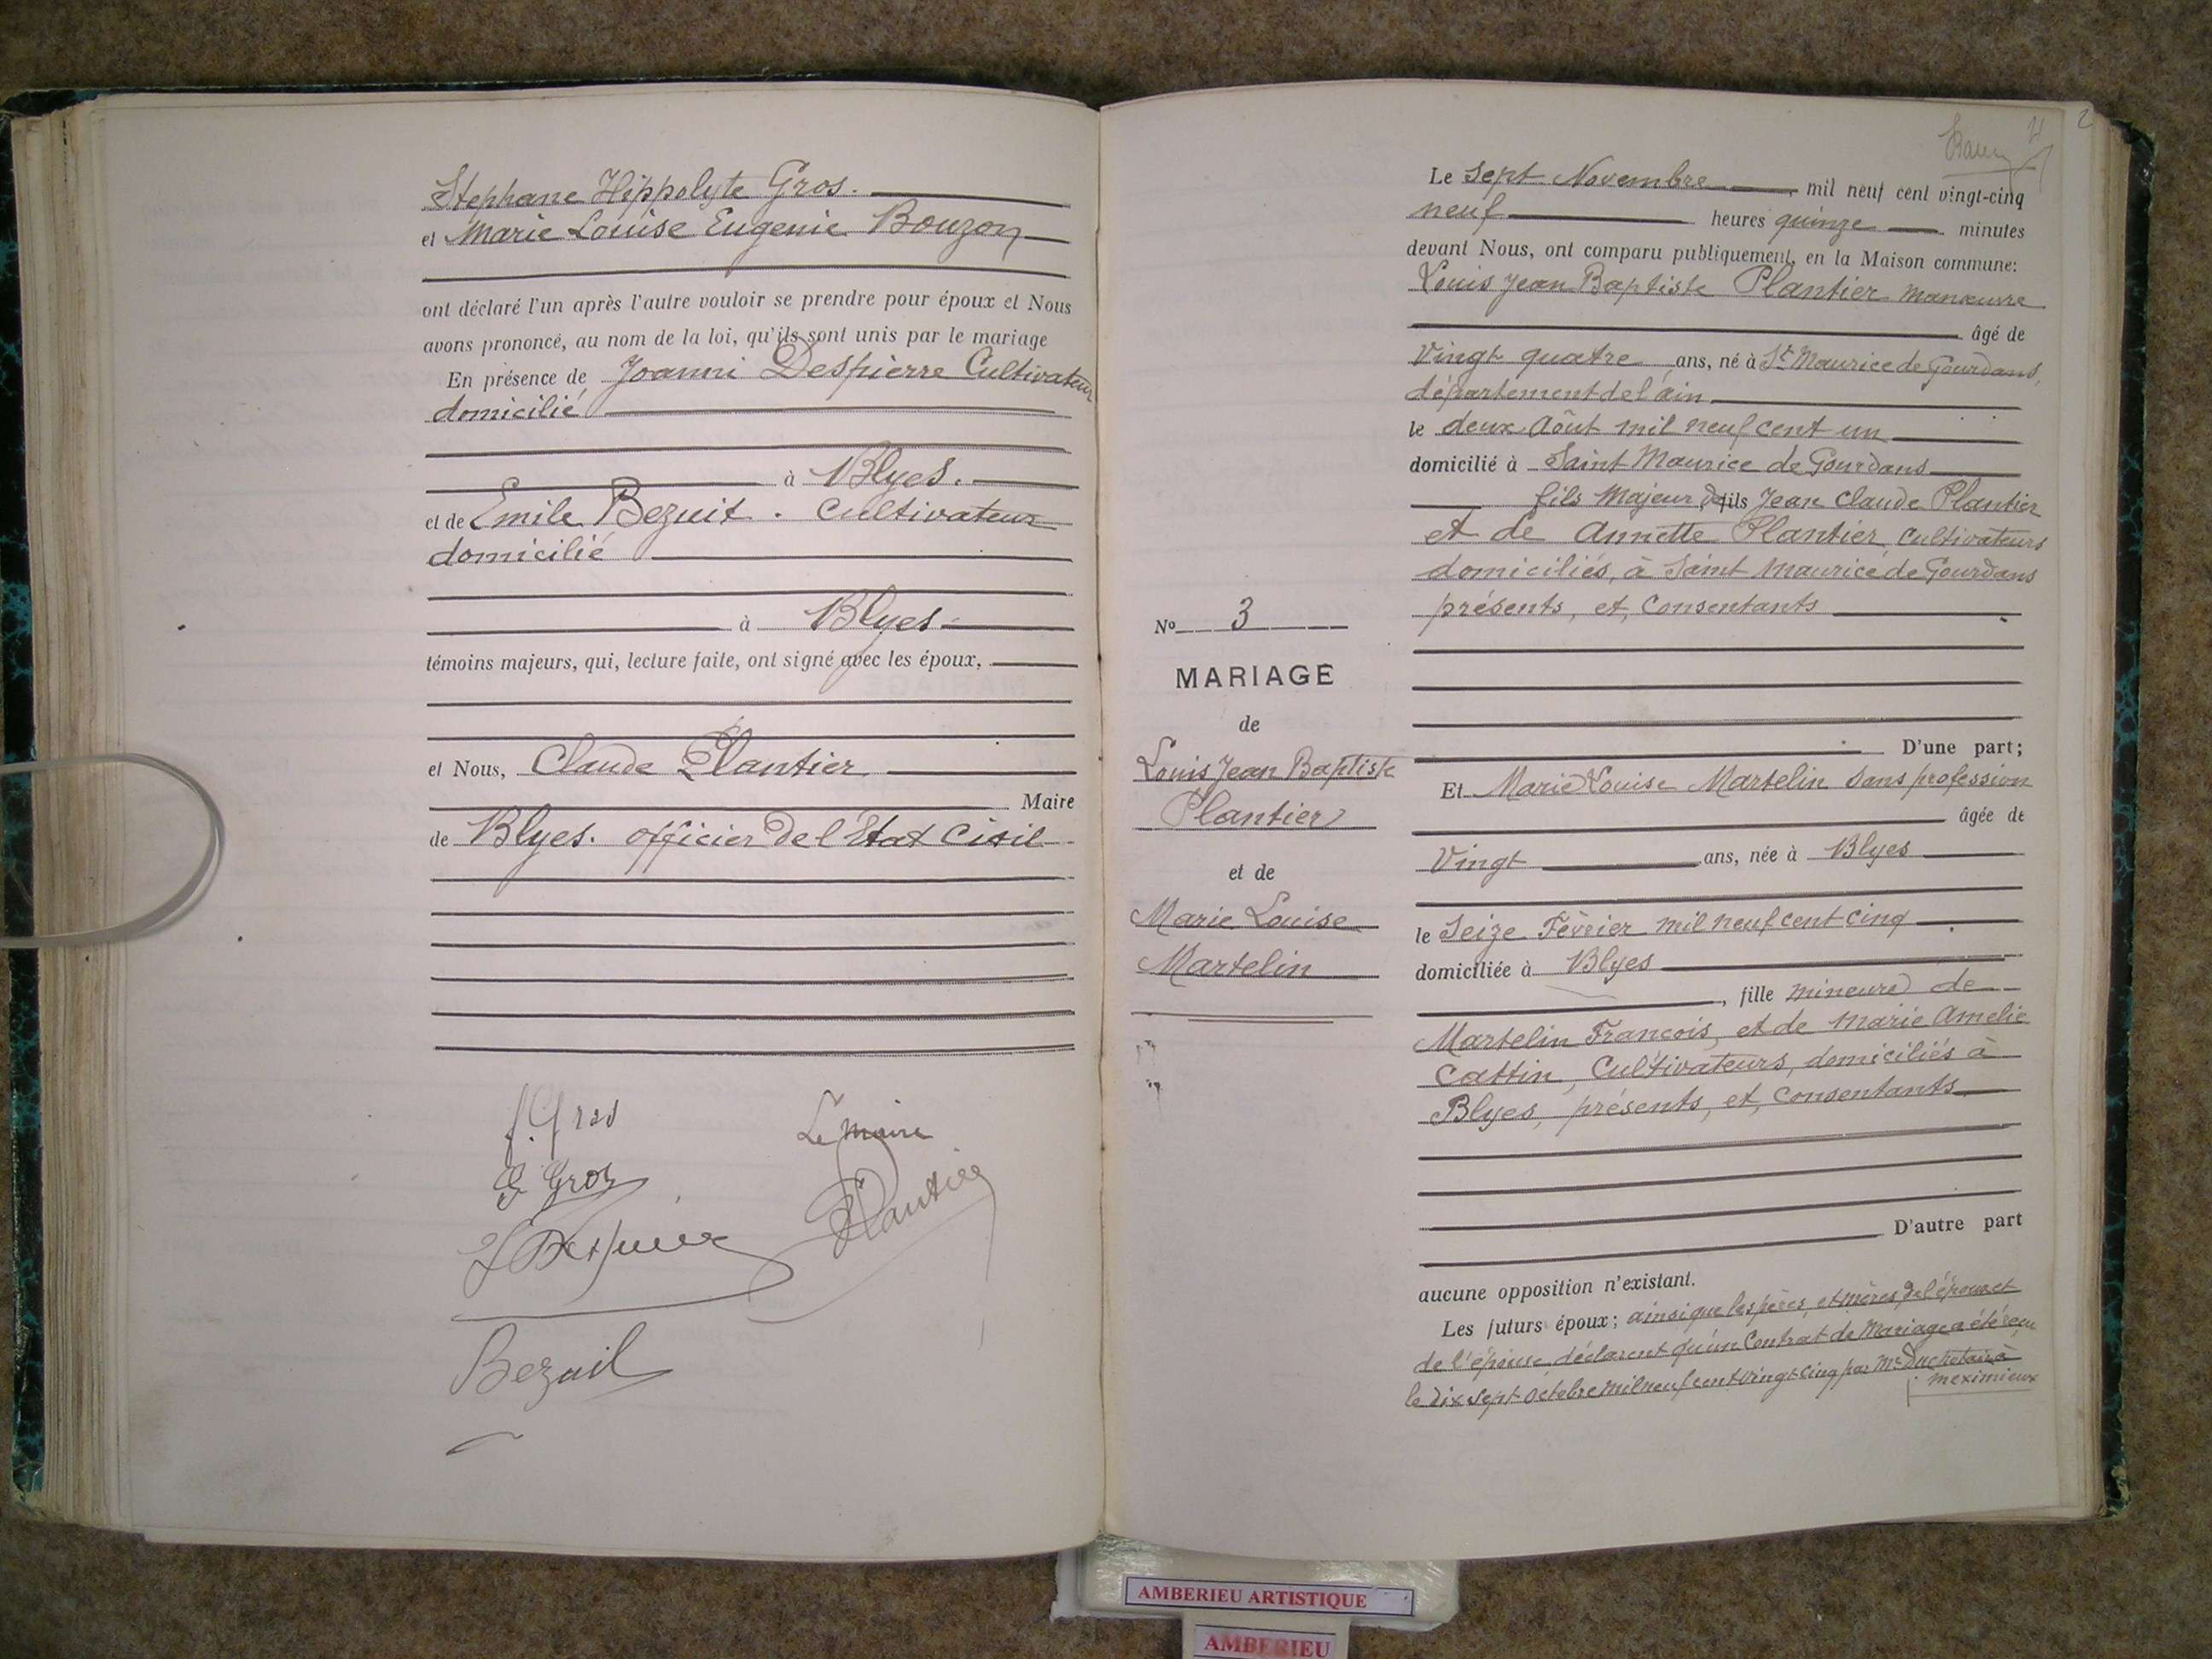 Stephane Hippolyte Gros.
et Marie Louise Eugenie Bouzon
ont déclaré l'un après l'autre vouloir se prendre pour époux et Nous
avons prononcé, au nom de la loi, qu'ils sont unis par le mariage
En présence de Joanni Despierre Cultivateur
domicilié
à Blyes.
et de Emile Bezuit. Cultivateur
domicilié
à Blyes
témoins majeurs, qui, lecture faite, ont signé avec les époux,
et Nous, Claude Plantier
Maire
de Blyes. officier de l'Etat Civil
f. Gros
G Gros
Le Maire
J Despierre
Plantier
Bezuil
4
2
Le Sept Novembre mil neuf cent vingt-cinq
neuf heures quinze minutes
devant Nous, ont comparu publiquement, en la Maison commune:
Louis Jean Baptiste Plantier manœuvre
âgé de
Vingt quatre ans, né à St Maurice de Gourdans,
département de l'ain
le deux Août mil neuf cent un
domicilié à Saint Maurice de Gourdans
fils Majeur de fils Jean Claude Plantier
et de Annette Plantier, Cultivateurs
domiciliés, à Saint Maurice de Gourdans
présents, et, Consentants
No 3
MARIAGE
de
Louis Jean Baptiste
Plantier
et de
Marie Louise
Martelin
D'une part;
Et Marie Louise Martelin Sans profession
âgée de
Vingt ans, née à Blyes
le Seize Février mil neuf cent cinq
domiciliée à Blyes
, fille mineure de
Martelin François, et de Marie Amelie
Cattin, Cultivateurs, domiciliés à
Blyes, présents, et, Consentants
D'autre part
aucune opposition n'existant.
Les futurs époux; ainsi que les pères, et mères, de l'époux et
de l'épouse, déclarent qu'un Contrat de Mariage a été reçu
le dix sept octobre mil neuf cent vingt cinq par Me Duchetair à
meximieux
AMBERIEU ARTISTIQUE
AMBERIEU